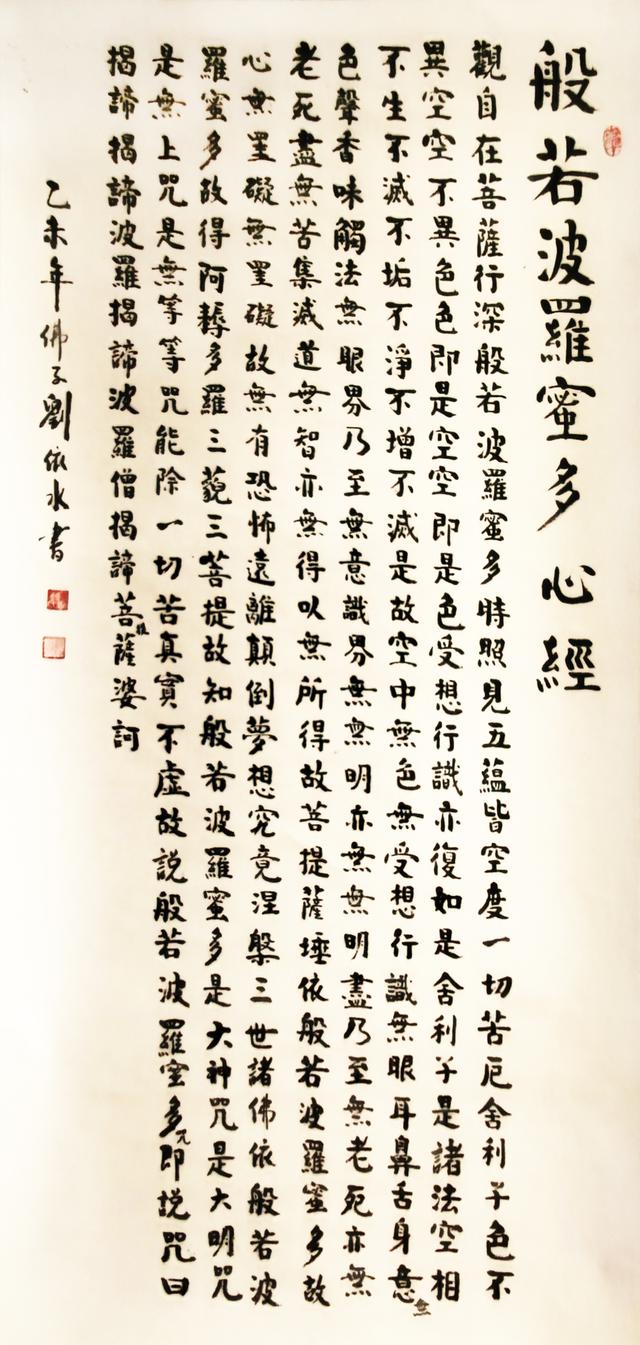 般若波羅蜜多心經
觀自在菩薩行深般若波羅蜜多時照見五蘊皆空度一切苦厄舍利子色不
異空空不異色色即是空空即是色受想行識亦復如是舍利子是諸法空相
不生不滅不垢不淨不增不減是故空中無色無受想行識無眼耳鼻舌身意無
色聲香味觸法無眼界乃至無意識界無無明亦無無明盡乃至無老死亦無
老死盡無苦集滅道無智亦無得以無所得故菩提薩埵依般若波羅蜜多故
心無罣礙無罣礙故無有恐怖遠離顛倒夢想究竟涅槃三世諸佛依般若波
羅蜜多故得阿耨多羅三藐三菩提故知般若波羅蜜多是大神咒是大明咒
是無上咒是無等等咒能除一切苦真實不虛故說般若波羅蜜多咒即說咒曰
揭諦揭諦波羅揭諦波羅僧揭諦菩提薩婆訶
乙未年佛子劉依水書